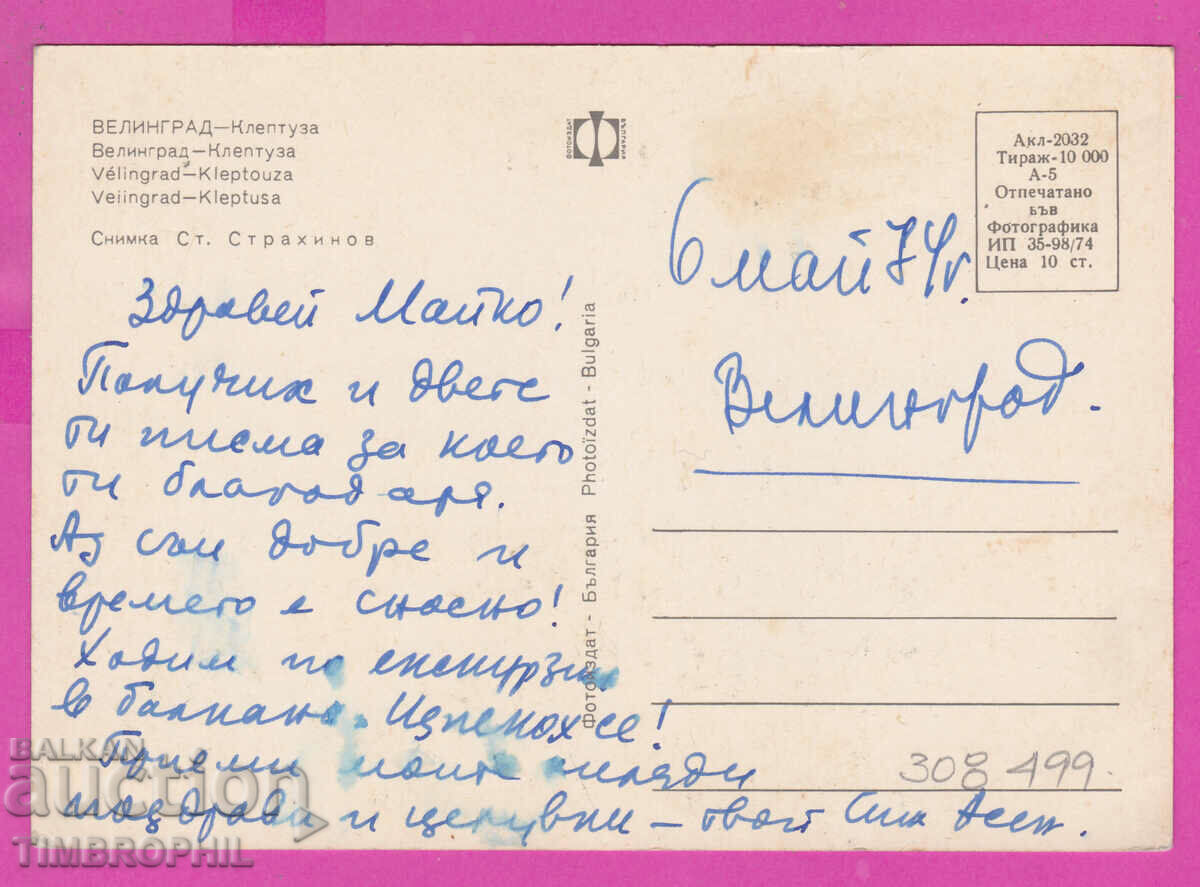 ВЕЛИНГРАД—Клептуза
Велинград—Клептуза
Vélingrad—Kleptouza
Veiingrad—Kleptusa
Снимка Ст. Страхинов
ФОТОИЗДАТ
БЪЛГАРИЯ
Акл-2032
Тираж-10 000
А-5
Отпечатано
ъв
Фотографика
ИП 35-98/74
Цена 10 ст.
6 май 74 г.
Велинград.
Здравей Майко!
Получих и двете
ти писма за което
ти благодаря.
Аз съм добре и
времето е сносно!
Ходим по екскурзии
в балкана. Изпекох се!
Приеми моите хиляди
поздрави и целувки – твой син Асен.
Фотоиздат - България Photoïzdat - Bulgaria
308 499.
BALKAN
auction
TIMBROPHIL